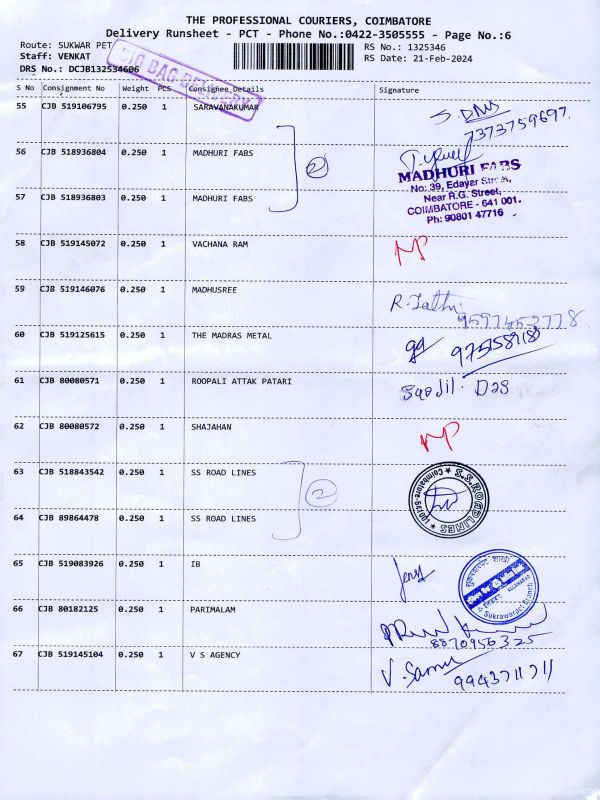 THE PROFESSIONAL COURIERS, COIMBATORE
Delivery Runsheet - PCT - Phone No.:0422-3505555 - Page No.:6
Route: SUKWAR PET
RS No.: 1325346
Staff: VENKAT
RS Date: 21-Feb-2024
DRS No.: DCJB132534606
BIG BAG DELIVERY
S No Consignment No Weight PCS Consignee Details Signature
55 CJB 519106795 0.250 1 SARAVANAKUMAR
7373759697.
56 CJB 518936804 0.250 1 MADHURI FABS
2
MADHURI FABS
No: 39, Edayar Street,
57 CJB 518936803 0.250 1 MADHURI FABS
Near R.G. Street,
COIMBATORE - 641 001.
Ph: 90801 47716
58 CJB 519145072 0.250 1 VACHANA RAM
NP
59 CJB 519146076 0.250 1 MADHUSREE
60 CJB 519125615 0.250 1 THE MADRAS METAL
61 CJB 80080571 0.250 1 ROOPALI ATTAK PATARI
62 CJB 80080572 0.250 1 SHAJAHAN
NP
63 CJB 518843542 0.250 1 SS ROAD LINES
2
S.S. ROADLINES
64 CJB 89864478 0.250 1 SS ROAD LINES
65 CJB 519083926 0.250 1 IB
Sukrawarpet Branch
66 CJB 80182125 0.250 1 PARIMALAM
8870956325
67 CJB 519145104 0.250 1 V S AGENCY
9943711711